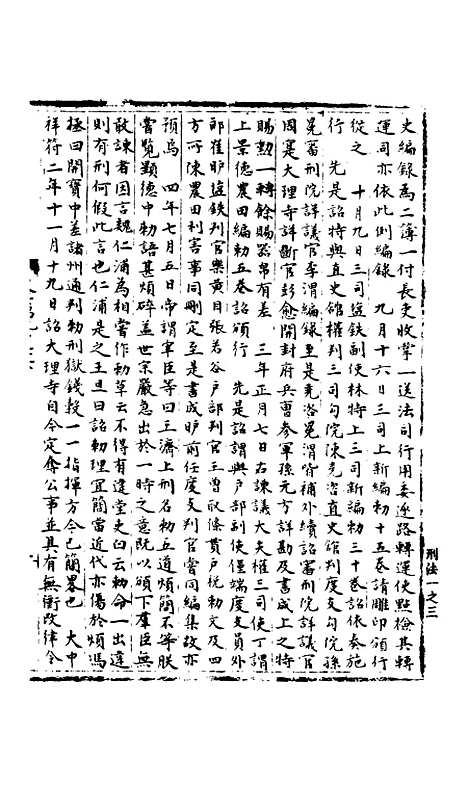 刑法一之三
史編錄為二簿一付長吏收掌一送法司行用委逐路轉運使點檢其轉
運司亦依此例編錄　九月十六日三司上新編勅十五卷請雕印頒行
從之　十月九日三司鹽鐵副使林特上三司新編勅三十卷詔依奏施
行　先是詔特與直史館權判三司勾院陳堯咨直史館判度支勾院孫
冕審刑院詳議官李渭編錄至是堯洛冕渭皆補外續詔審刑院詳議官
周寔大理寺詳斷官彭愈開封府兵曹參軍孫元方詳勘及書成上之特
賜勳一轉餘賜器帛有差　三年正月七日右諫議大夫權三司使丁謂
上景德農田編勅五卷詔頒行　先是詔謂與戶部副使崔端度支員外
郎崔昈鹽鐵判官樂黃目張若谷戶部判官王曾取條貫戶稅勅文及四
方所陳農田利害事同刪定至是書成昈前任度支判官嘗同編集故亦
預焉　四年七月五日帝謂宰臣等曰三濟上刑名勅五道煩簡不等朕
嘗覽顯德中勅語甚煩碎蓋世宗嚴急出於一時之意既以頒下羣臣無
敢諫者因言魏仁浦為相嘗作勅草云不得有違堂吏白云勅命一出違
則有刑何假此言也仁浦是之王旦曰詔勅理宜簡當近代亦傷於煩馮
拯曰開寶中差諸州通判勅刑獄錢穀一一指揮方今已簡畧也　大中
祥符二年十一月十九日詔大理寺自今定奪公事並具有無衝改律令